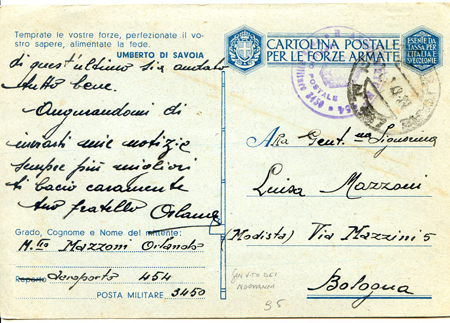 Temprate le vostre forze, perfezionate il vo-
stro sapere, alimentate la fede.
UMBERTO DI SAVOIA
di quest'ultimo sia andato
tutto bene.
Augurandomi di
inviarti mie notizie
sempre più migliori
ti bacio caramente
tuo fratello Orlando
Grado, Cognome e Nome del mittente:
M.llo Mazzoni Orlando
Reparto Aeroporto 454
POSTA MILITARE 3450
CARTOLINA POSTALE
PER LE FORZE ARMATE
ESENTE DA
TASSA PER
L'ITALIA E
SUE COLONIE
POSTALE
454
Alla Gent.ma Signorina
Luisa Mazzoni
(Modista) Via Mazzini 5
Bologna
SAN VITO DEI
NORMANNI
35